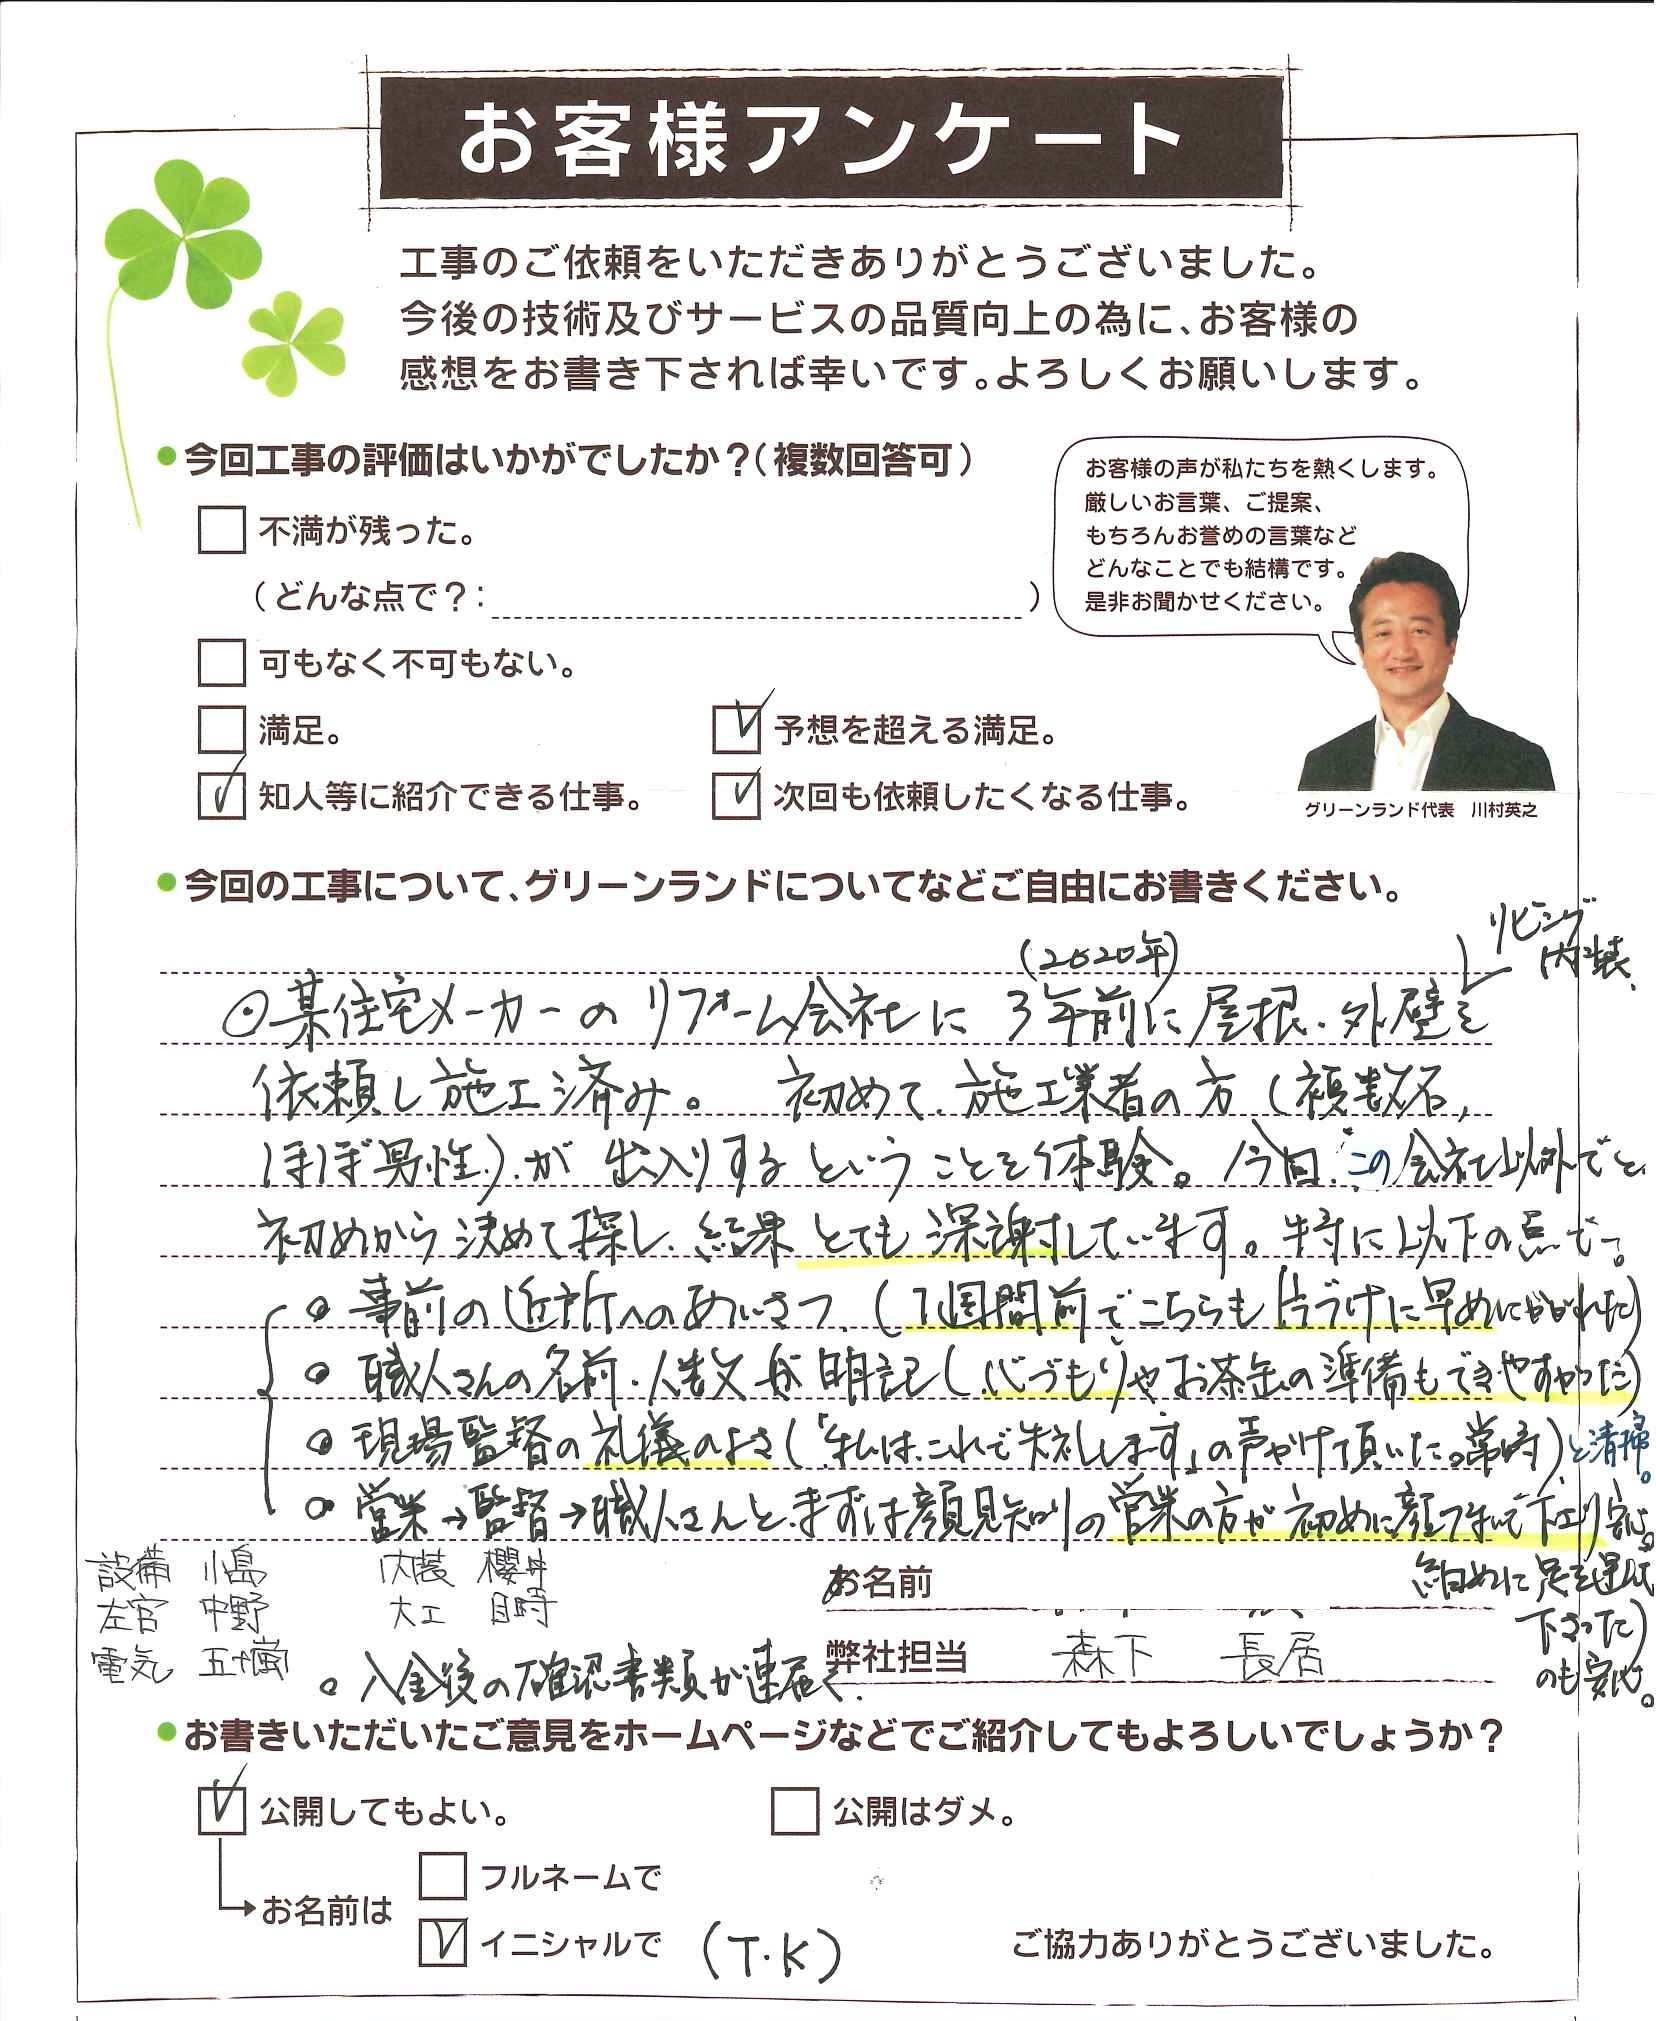 お客様アンケート
工事のご依頼をいただきありがとうございました。
今後の技術及びサービスの品質向上の為に、お客様の
感想をお書き下されば幸いです。よろしくお願いします。
●今回工事の評価はいかがでしたか？（複数回答可）
お客様の声が私たちを熱くします。
厳しいお言葉、ご提案、
もちろんお誉めの言葉など
どんなことでも結構です。
是非お聞かせください。
グリーンランド代表 川村英之
不満が残った。
（どんな点で？： ）
可もなく不可もない。
満足。
予想を超える満足。
知人等に紹介できる仕事。
次回も依頼したくなる仕事。
●今回の工事について、グリーンランドについてなどご自由にお書きください。
リビング
内装、
(2020年)
◎某住宅メーカーのリフォーム会社に3年前に屋根・外壁を
依頼し施工済み。 初めて、施工業者の方（複数名,
ほぼ男性）が出入りするということを体験。今回、この会社以外でと、
初めから決めて探し、結果とても深謝しています。特に以下の点で。
○事前の近所へのあいさつ、（1週間前でこちらも片づけに早めにかかれた）
○職人さんの名前・人数が明記（心づもりやお茶缶の準備もできやすかった）
○現場監督の礼儀のよさ（「私は、これで失礼します」の声がけて頂いた。常時）と清掃。
○営業→監督→職人さんと、まずは顔見知りの営業の方が初めに顔つなぎして下さり安心。
細めに足を運んで
下さった）
のも安心。
設備 小島 内装 櫻井
左官 中野 大工 目時
電気 五十嵐
○入金後の確認書類が速届く.
お名前
弊社担当 森下 長居
●お書きいただいたご意見をホームページなどでご紹介してもよろしいでしょうか？
公開してもよい。
公開はダメ。
お名前は
フルネームで
イニシャルで (T.K)
ご協力ありがとうございました。